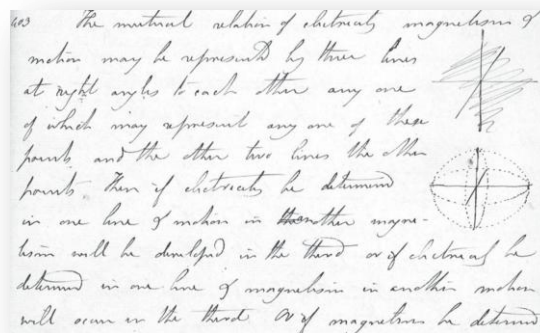 403 The mutual relation of electricity magnetism &
motion may be represented by three lines
at right angles to each other any one
of which may represent any one of these
points and the other two lines the other
points. Then if electricity be determined
in one line & motion in another magne-
tism will be developed in the third or if electricity be
determined in one line & magnetism in another motion
will occur in the third. Or if magnetism be determined